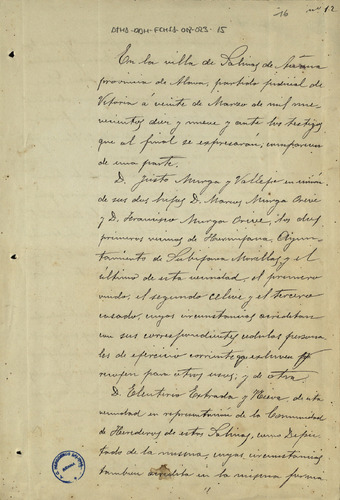 16
nº 12
En la villa de Salinas de Añana
provincia de Alava, partido judicial de
Vitoria á veinte de Marzo de mil nue-
vecientos diez y nueve y ante los testigos
que al final se expresarán, comparecen
de una parte.
D. Justo Murga y Vallejo en unión
de sus dos hijos D. Marcos Murga
y D. Francisco Murga, los dos
primeros vecinos de Hormijana, Ayun-
tamiento de Subijana Morillas y el
último de esta vecindad, el primero
viudo, el segundo célive y el tercero
casado, cuyas circunstancias acreditan
con sus correspondientes cedulas persona-
les de ejercicio corriente que exhiven y
recojen para otros usos; y de otra
D. Eleuterio Estrada y, de esta
vecindad en representación de la Comunidad
de Herederos de estas Salinas, como Dipu-
tado de la misma, cuyas circunstancias
tambien acredita en la misma forma